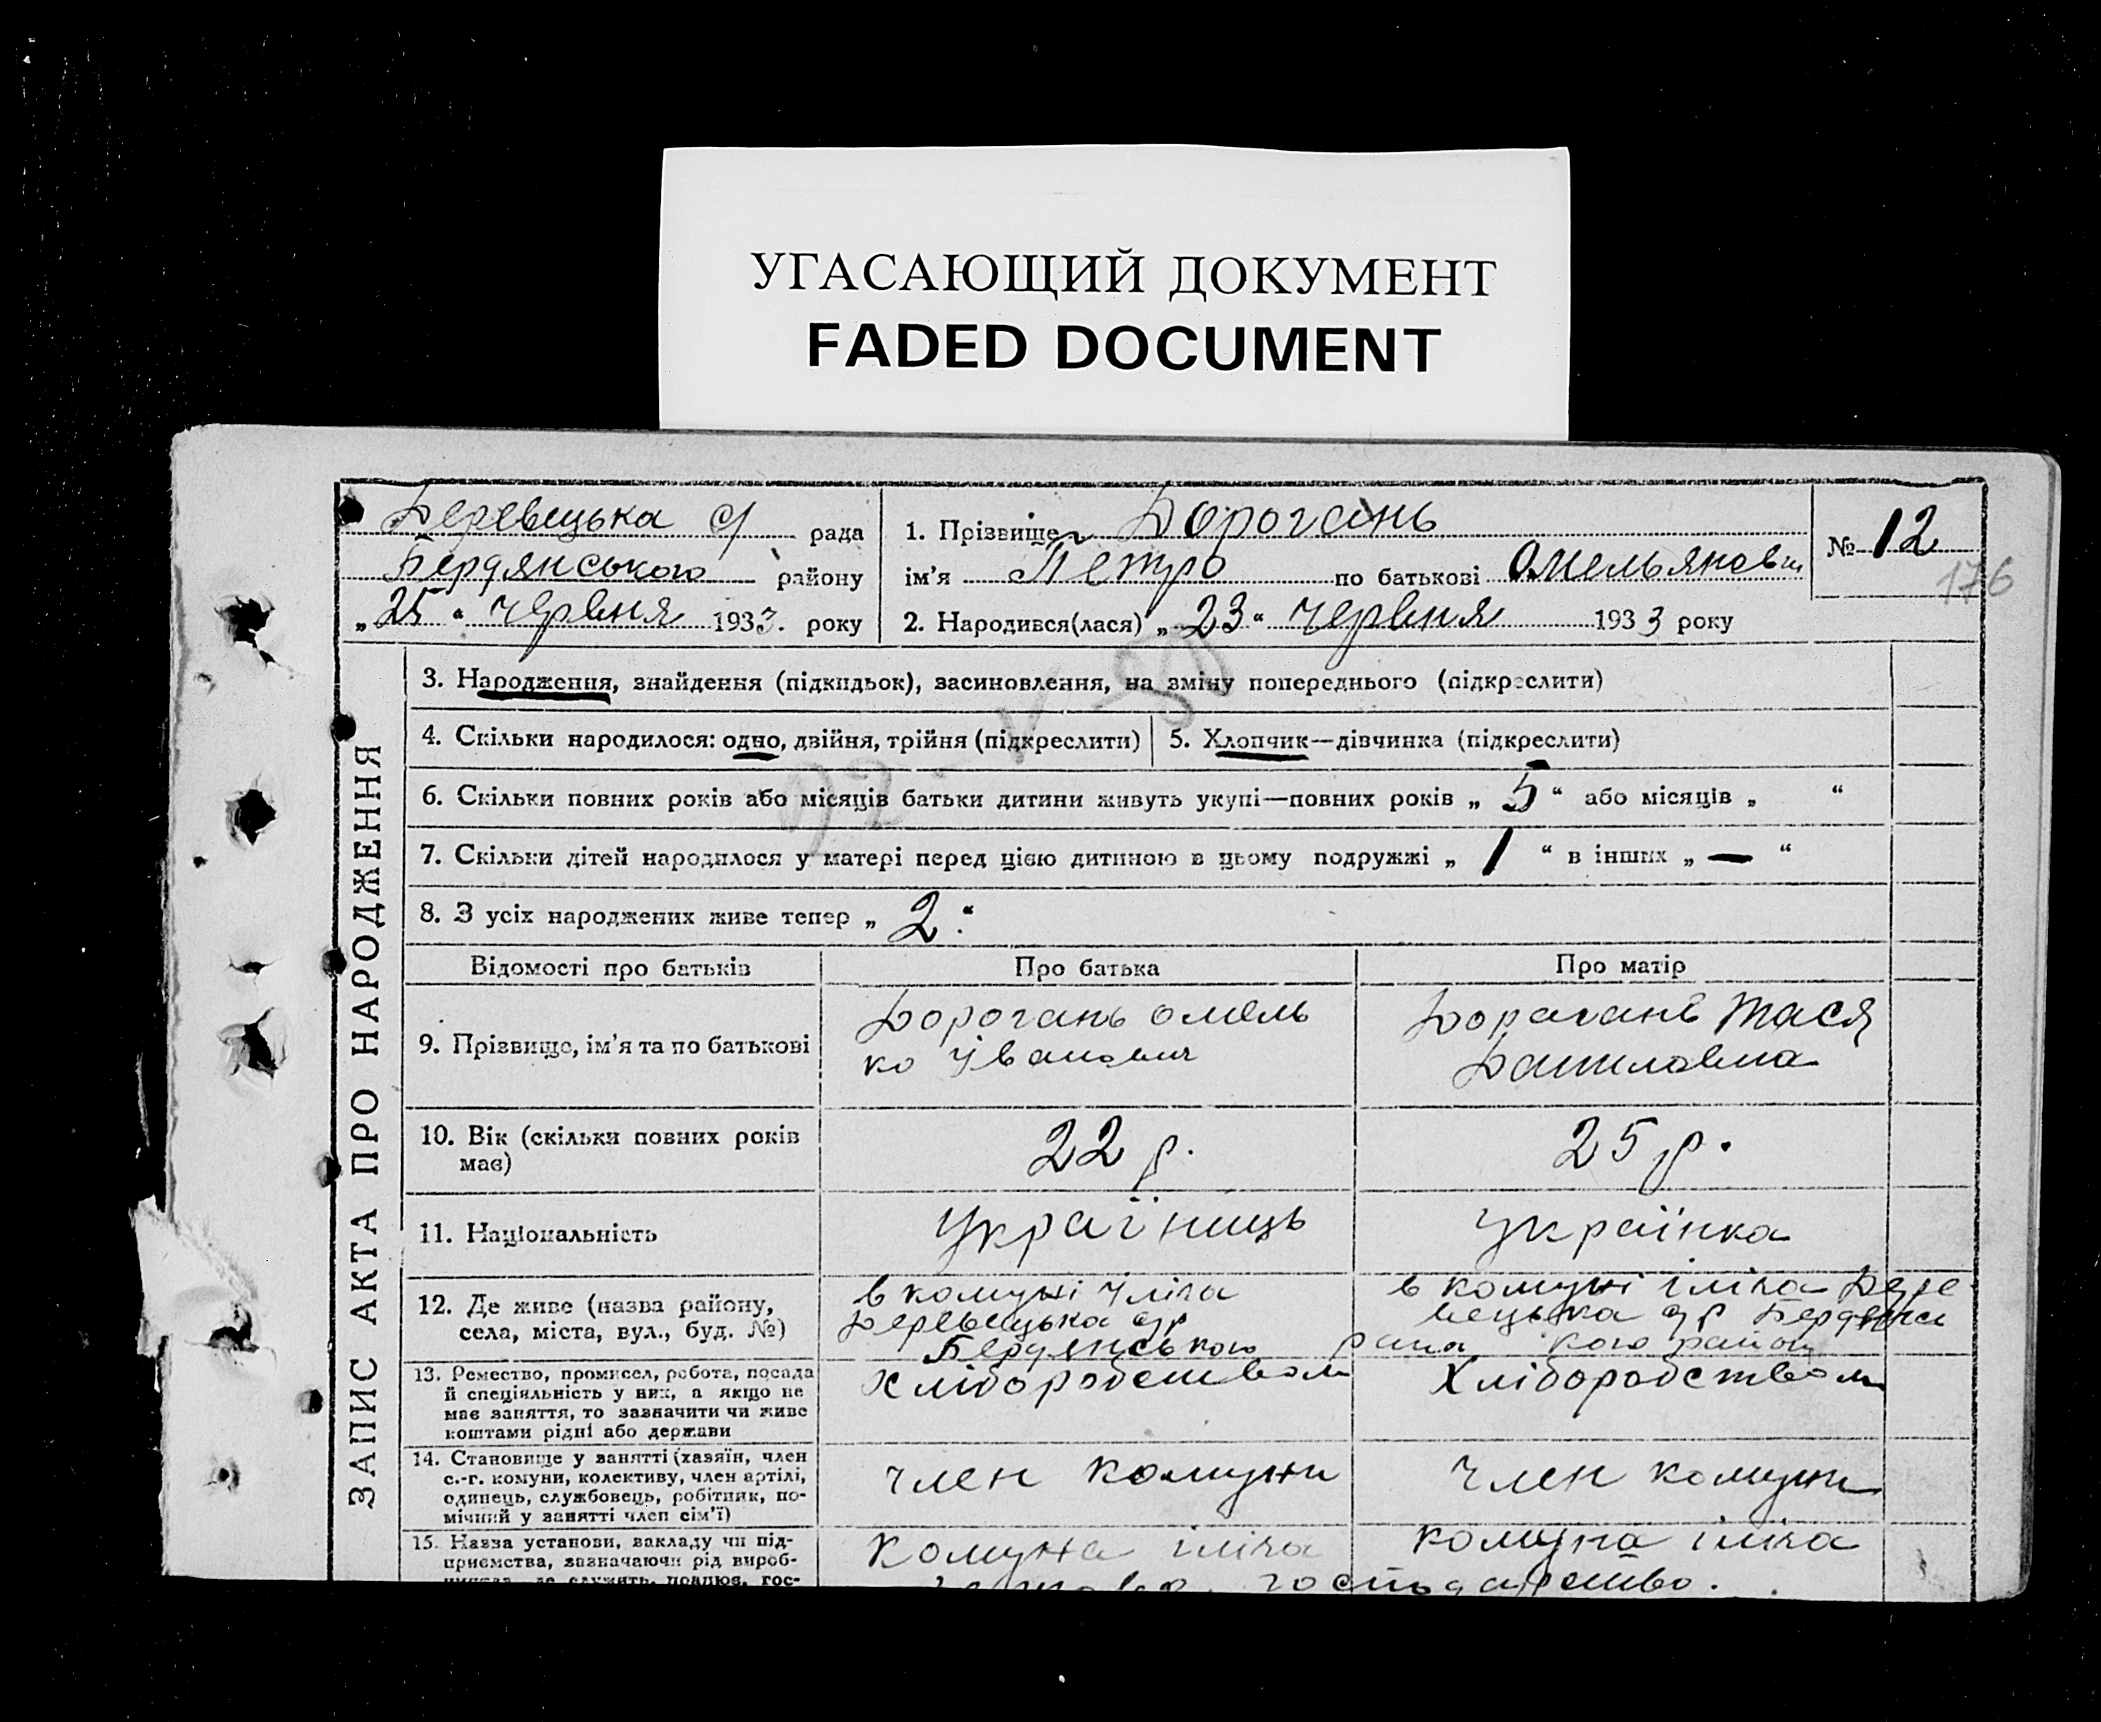 УГАСАЮЩИЙ ДОКУМЕНТ
FADED DOCUMENT
Деревецька с/ рада
Бердянського району
„25“ червня 1933. року
1. Прізвище Дорогань
ім’я Петро по батькові Омельянович
2. Народився(лася) „23“ червня 1933 року
№ 12
176
ЗАПИС АКТА ПРО НАРОДЖЕННЯ
3. Народження, знайдення (підкидьок), засиновлення, на зміну попереднього (підкреслити)
4. Скільки народилося: одно, двійня, трійня (підкреслити)
5. Хлопчик—дівчинка (підкреслити)
6. Скільки повних років або місяців батьки дитини живуть укупі—повних років „5“ або місяців „ “
7. Скільки дітей народилося у матері перед цією дитиною в цьому подружжі „1“ в інших „—“
8. З усіх народжених живе тепер „2“
Відомості про батьків
Про батька
Про матір
9. Прізвище, ім’я та по батькові
Дорогань Омель
ко Іванович
Дорагань Тася
10. Вік (скільки повних років
має)
22 р.
25 р.
11. Національність
Україниць
Українка
12. Де живе (назва району,
села, міста, вул., буд. №)
в комуні Іліча
Деревецька с/р
Бердянського
в комуні Іліча Дере
вецька с/р Бердянсь
кого району
13. Ремество, промисел, робота, посада
й спеціяльність у них, а якщо не
має заняття, то зазначити чи живе
коштами рідні або держави
Хліборобством
Хліборобством
14. Становище у занятті (хазяїн, член
с.-г. комуни, колективу, член артілі,
одинець, службовець, робітник, по-
мічний у занятті член сім’ї)
член комуни
член комуни
15. Назва установи, закладу чи під-
приємства, зазначаючи рід вироб-
Комуна іліча
комуна іліча
господарство.